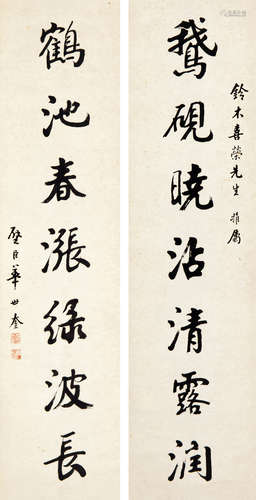 鈴木喜榮先生雅屬
鵝硯曉沾清露潤
鶴池春漲綠波長
璧臣華世奎